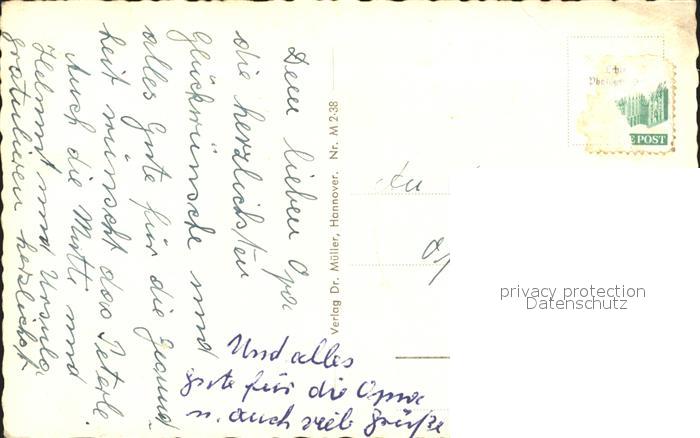 Dem lieben Opa
die herzlichsten
Glückwünsche und
alles Gute für die Gesund-
heit wünscht das Peterle.
Auch die Mutti und
Helmut und Ursula
gratulieren herzlichst
Und alles
gute für die Oma
u. auch viele Grüße
Verlag Dr. Müller, Hannover. Nr. M 2-38
An
POST
privacy protection
Datenschutz